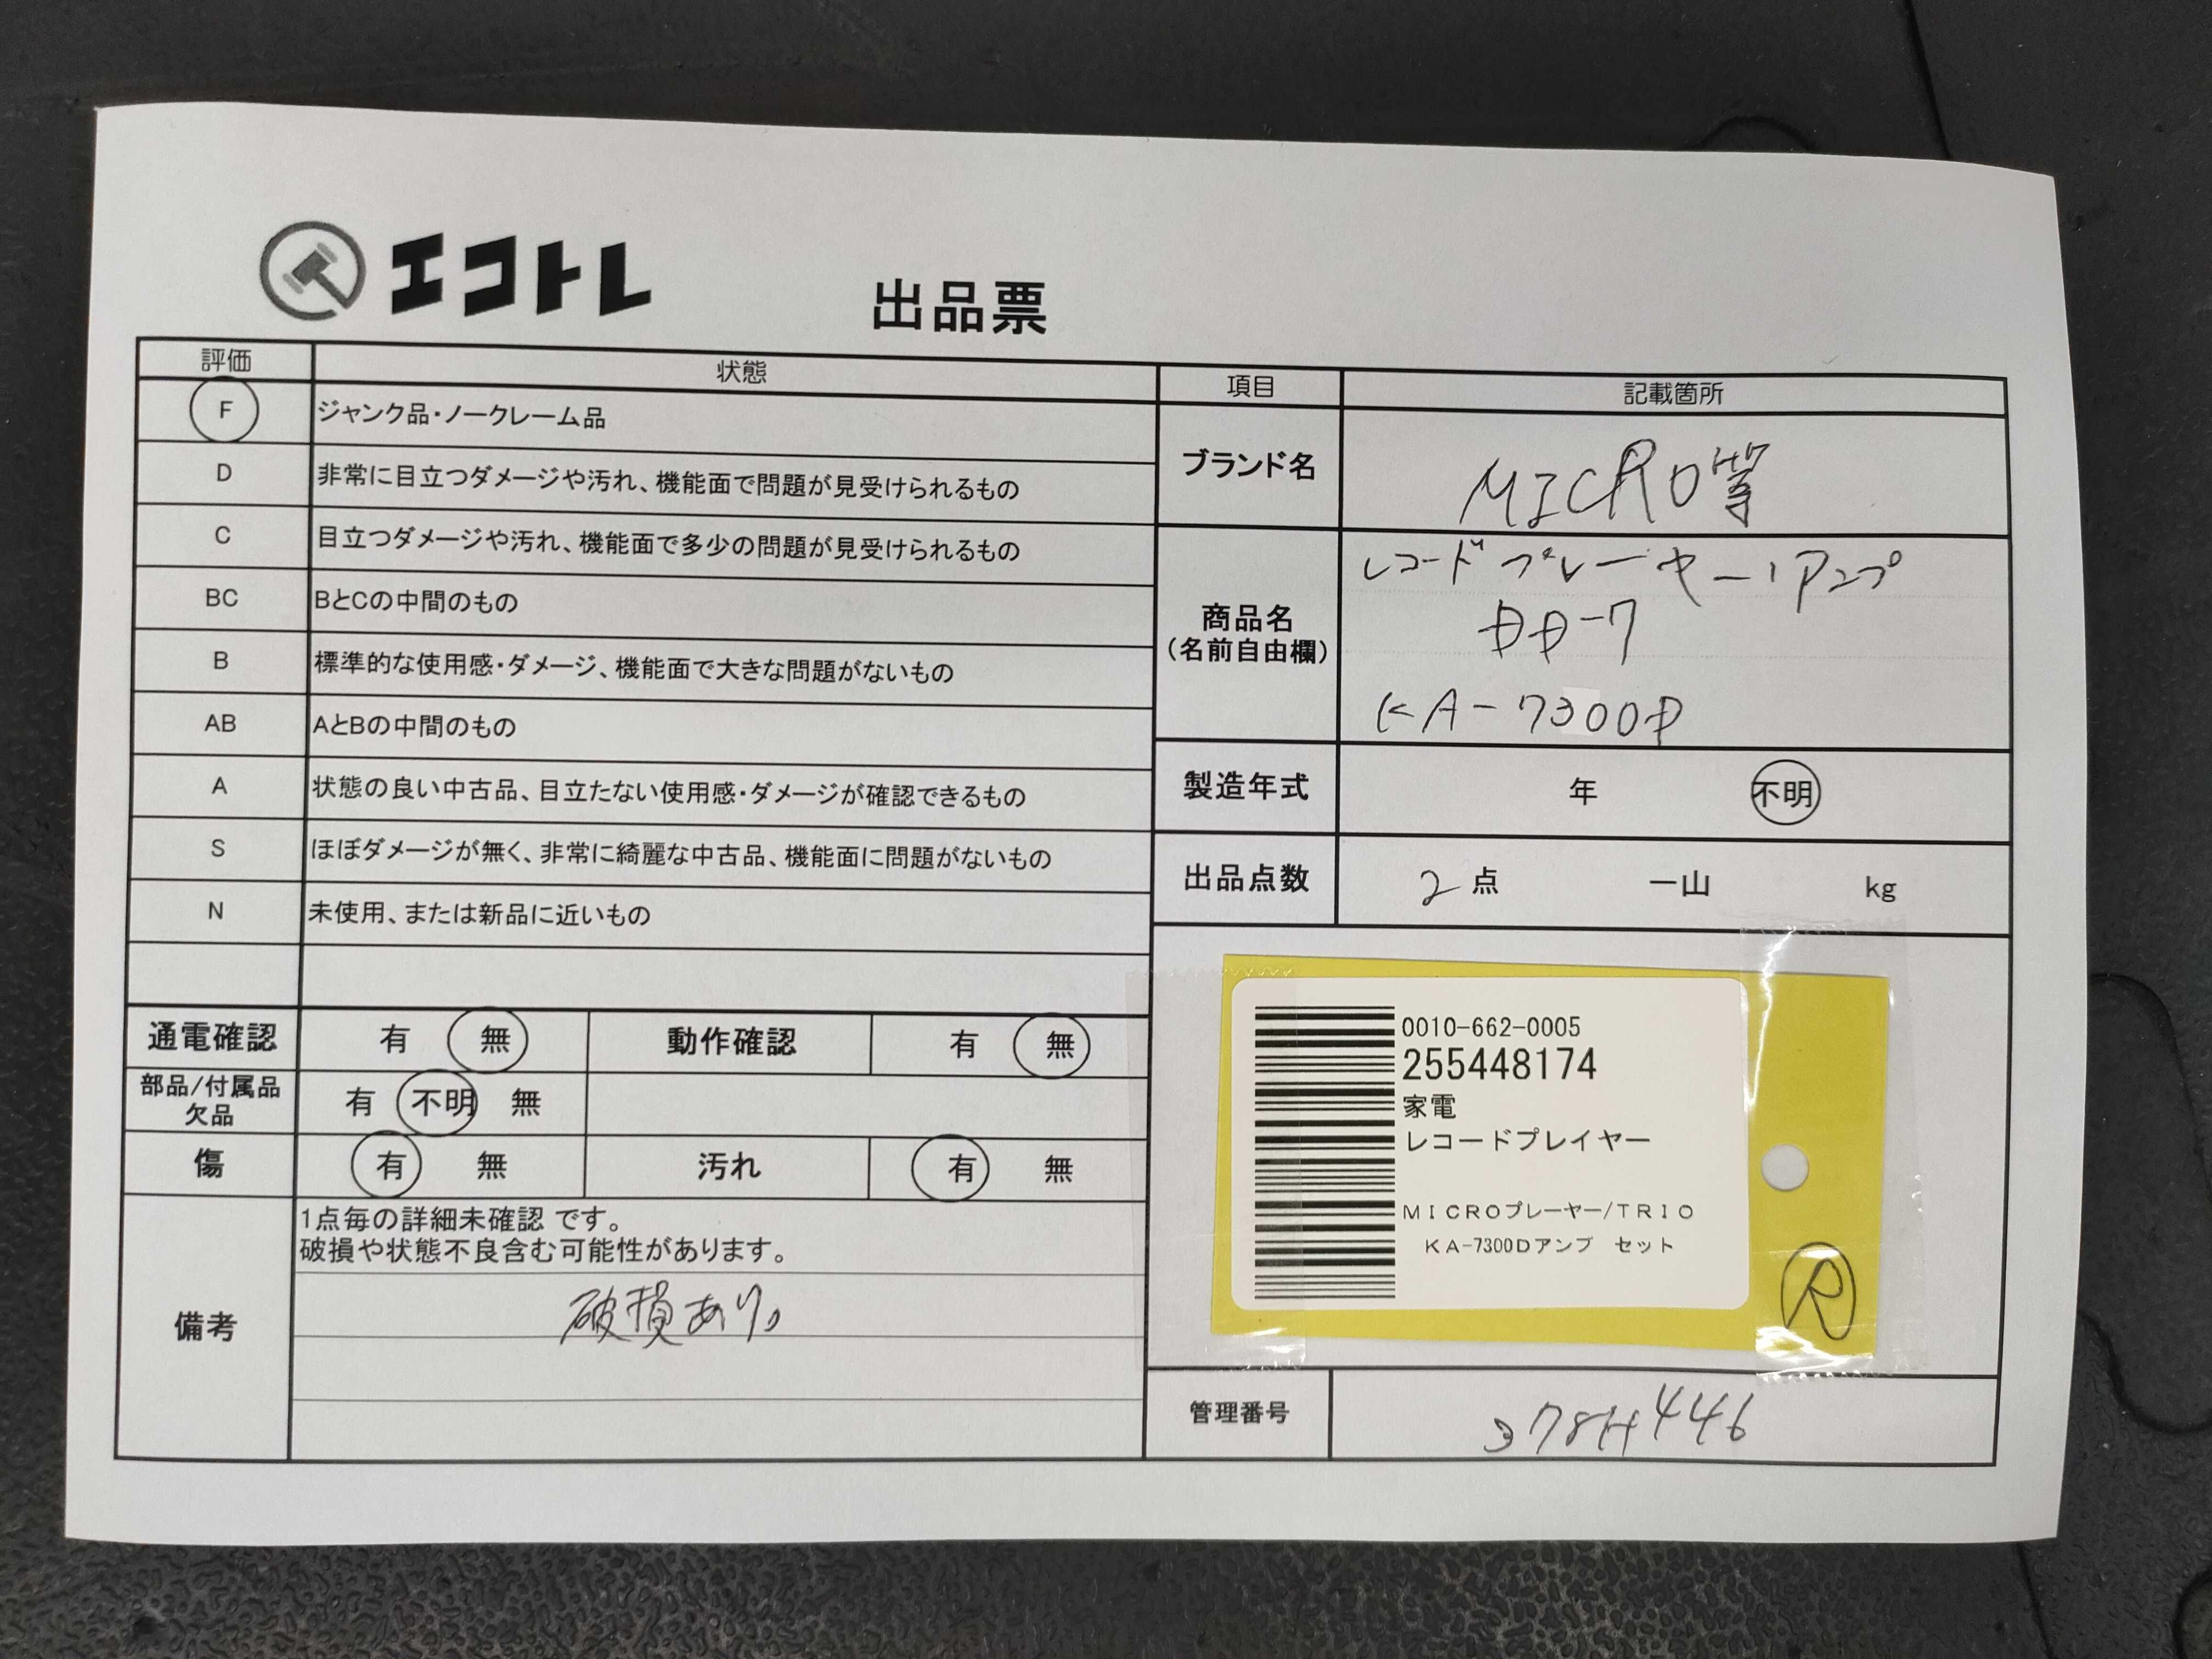 エコトレ
出品票
評価 状態
F ジャンク品・ノークレーム品
D 非常に目立つダメージや汚れ、機能面で問題が見受けられるもの
C 目立つダメージや汚れ、機能面で多少の問題が見受けられるもの
BC BとCの中間のもの
B 標準的な使用感・ダメージ、機能面で大きな問題がないもの
AB AとBの中間のもの
A 状態の良い中古品、目立たない使用感・ダメージが確認できるもの
S ほぼダメージが無く、非常に綺麗な中古品、機能面に問題がないもの
N 未使用、または新品に近いもの
通電確認 有 無 動作確認 有 無
部品/付属品 有 不明 無
欠品
傷 有 無 汚れ 有 無
備考
1点毎の詳細未確認 です。
破損や状態不良含む可能性があります。
破損あり。
項目 記載箇所
ブランド名 MICRO等
商品名
(名前自由欄)
レコードプレーヤー、アンプ
DD-7
KA-7300D
製造年式 年 不明
出品点数 2点 一山 kg
0010-662-0005
255448174
家電
レコードプレイヤー
MICROプレーヤー/TRIO
KA-7300Dアンプ セット
R
管理番号 378H446